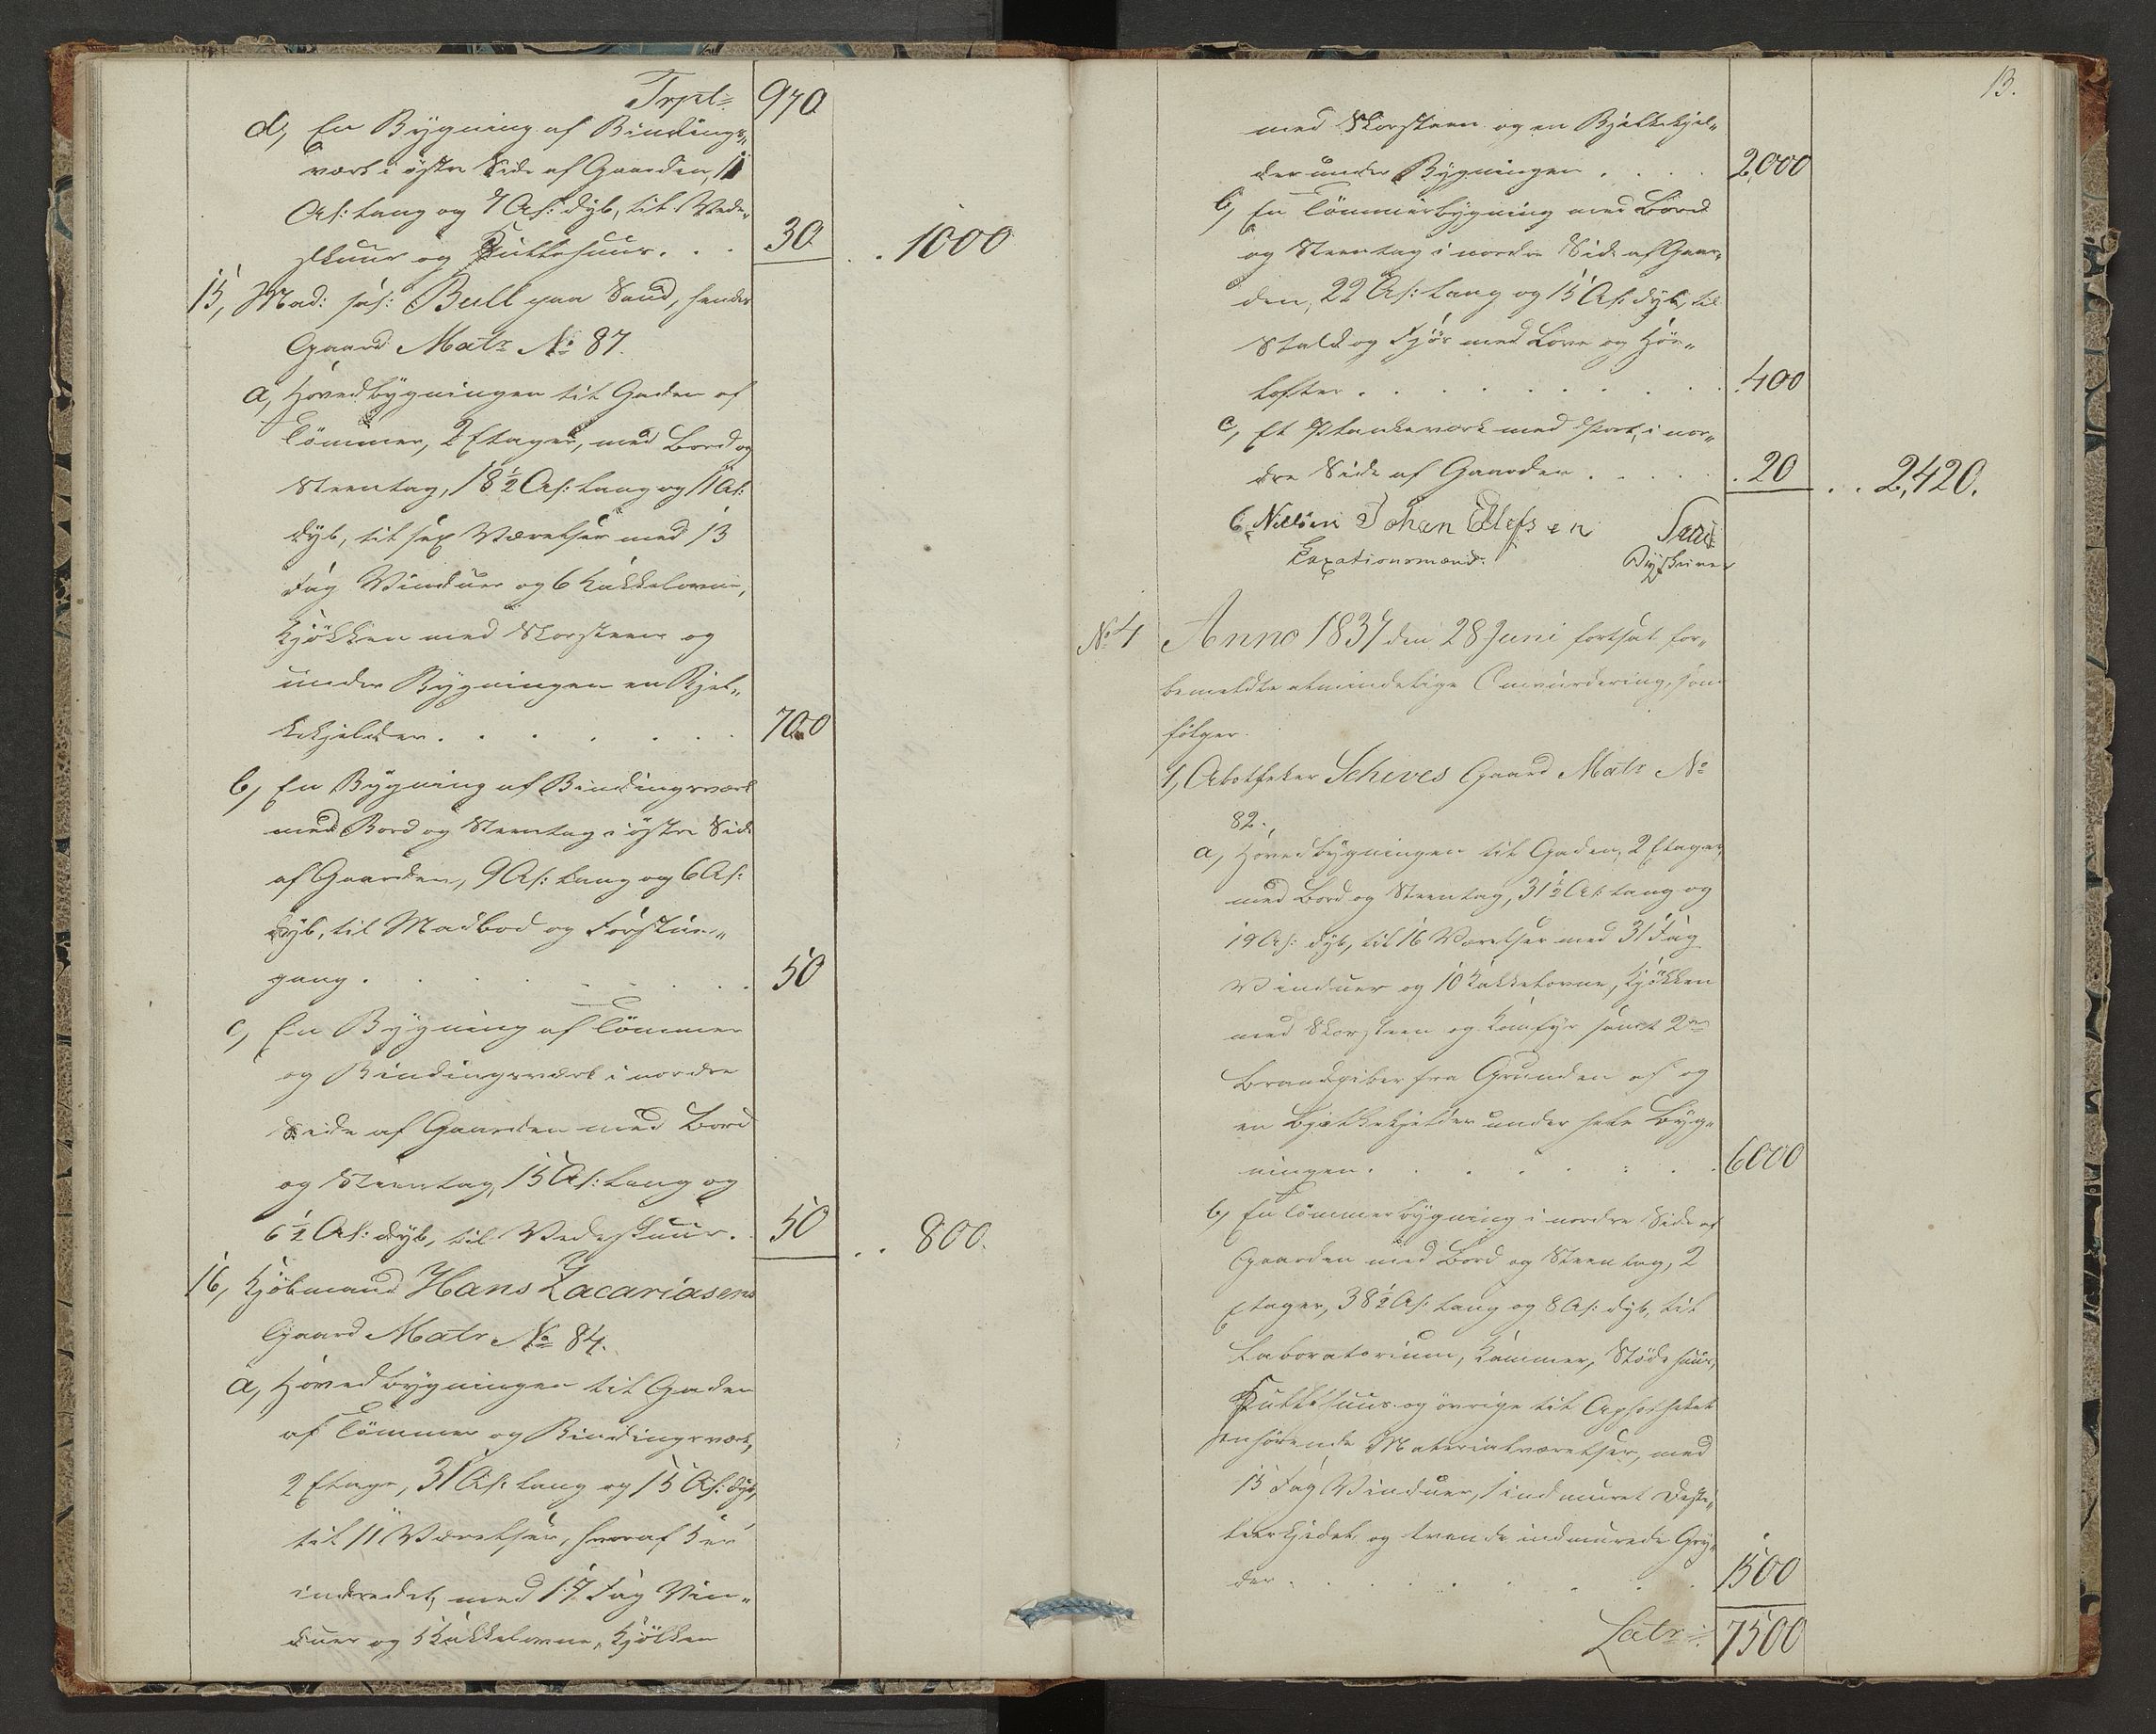 Trpt. 970
d, En Bygning af Bindings-
værk i østre Side af Gaarden, 11
Al: lang og 7 Al: dyb, til Vede-
skuur og Rullehuus. . . 30 . . 1000
15, Mad: sal: Bull paa Sand, hendes
Gaard Matr No 87.
a, Hovedbygningen til Gaden af
Tømmer, 2 Etager, med Bord og
Steentag, 18½ Al: lang og 11 Al:
dyb, til sex Værelser med 13
Fag Vinduer og 6 Kakkelovne,
Kjøkken med Skorsteen og
under Bygningen en Bjel-
kekjelder. . . . . . . 700
b, En Bygning af Bindingsværk
med Bord og Steentag i østre Side
af Gaarden, 9 Al: lang og 6 Al:
dyb, til Madbod og Forstue-
gang . . . . . . . . 50
c, En Bygning af Tømmer
og Bindingsværk i nordre
Side af Gaarden med Bord
og Steentag, 15 Al: lang og
6½ Al: dyb, til Vedeskuur. . 50 . . 800.
16, Kjøbmand Hans Zacariasens
Gaard Matr No 84.
a, Hovedbygningen til Gaden
af Tømmer og Bindingsværk,
2 Etage, 31 Al: lang og 15 Al: dyb,
til 11 Værelser, hvoraf 5 er
indredet, med 17 Fag Vin-
duer og 5 Kakkelovne, Kjøkken
13.
med Skorsteen og en Bjelkekjel-
der under Bygningen . . . . 2,000
b, En Tømmerbygning med Bord
og Steentag i nordre Side af Gaar-
den, 22 Al: lang og 15 Al: dyb, til
Stald og Fjøs med Løve og Høe-
lofter . . . . . . . . 400
c, Et Plankeværk med Port, i nor-
dre Side af Gaarden . . . . 20 . . 2,420.
C. Johan Ellefsen
Taxationsmænd. Byskriver
No 4 Anno 1837 den 28 Juni fortsat for-
bemeldte almindelige Omvurdering, som
følger.
1, Abotheker Schives Gaard Matr No
82.
a, Hovedbygningen til Gaden, 2 Etager,
med Bord og Steentag, 31½ Al: lang og
19 Al: dyb, til 16 Værelser med 31 Fag
Vinduer og 10 Kakkelovne, Kjøkken
med Skorsteen og Komfyr samt 2de
Brandpiber fra Grunden af og
en Bjelkekjelder under hele Byg-
ningen . . . . . . . 6000
b, En Tømmerbygning i nordre Side af
Gaarden med Bord og Steentag, 2
Etager, 38½ Al: lang og 8 Al: dyb, til
Laboratorium, Kammer, Stødehuus,
Rullehuus og øvrige til Apotheket
henhørende Materialværelser, med
15 Fag Vinduer, 1 indmuret Desti-
leerkjedel og tvende indmurede Gry-
der . . . . . . . . 1500
Latr: 7500